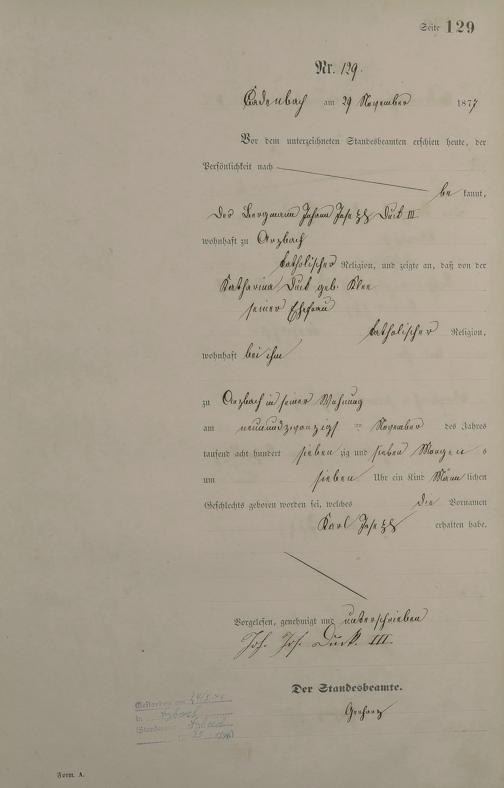 Seite 129
Nr. 129.
Cadenbach am 29 November 1877
Vor dem unterzeichneten Standesbeamten erschien heute, der
Persönlichkeit nach
be kannt,
der Bergmann Johann Josef Duck III
wohnhaft zu Arzbach
katholischer Religion, und zeigte an, daß von der
Katharina Duck geb. Klee
seiner Ehefrau
katholischer Religion,
wohnhaft bei ihm
zu Arzbach in seiner Wohnung
am neunundzwanzigs ten November des Jahres
tausend acht hundert sieben zig und sieben Morgen s
um sieben Uhr ein Kind Männ lichen
Geschlechts geboren worden sei, welches die Vornamen
Karl Josef erhalten habe.
Vorgelesen, genehmigt und unterschrieben
Joh. Jos. Duck. III.
Der Standesbeamte.
Gestorben am
in Arzbach
(Standesamt
Form. A.